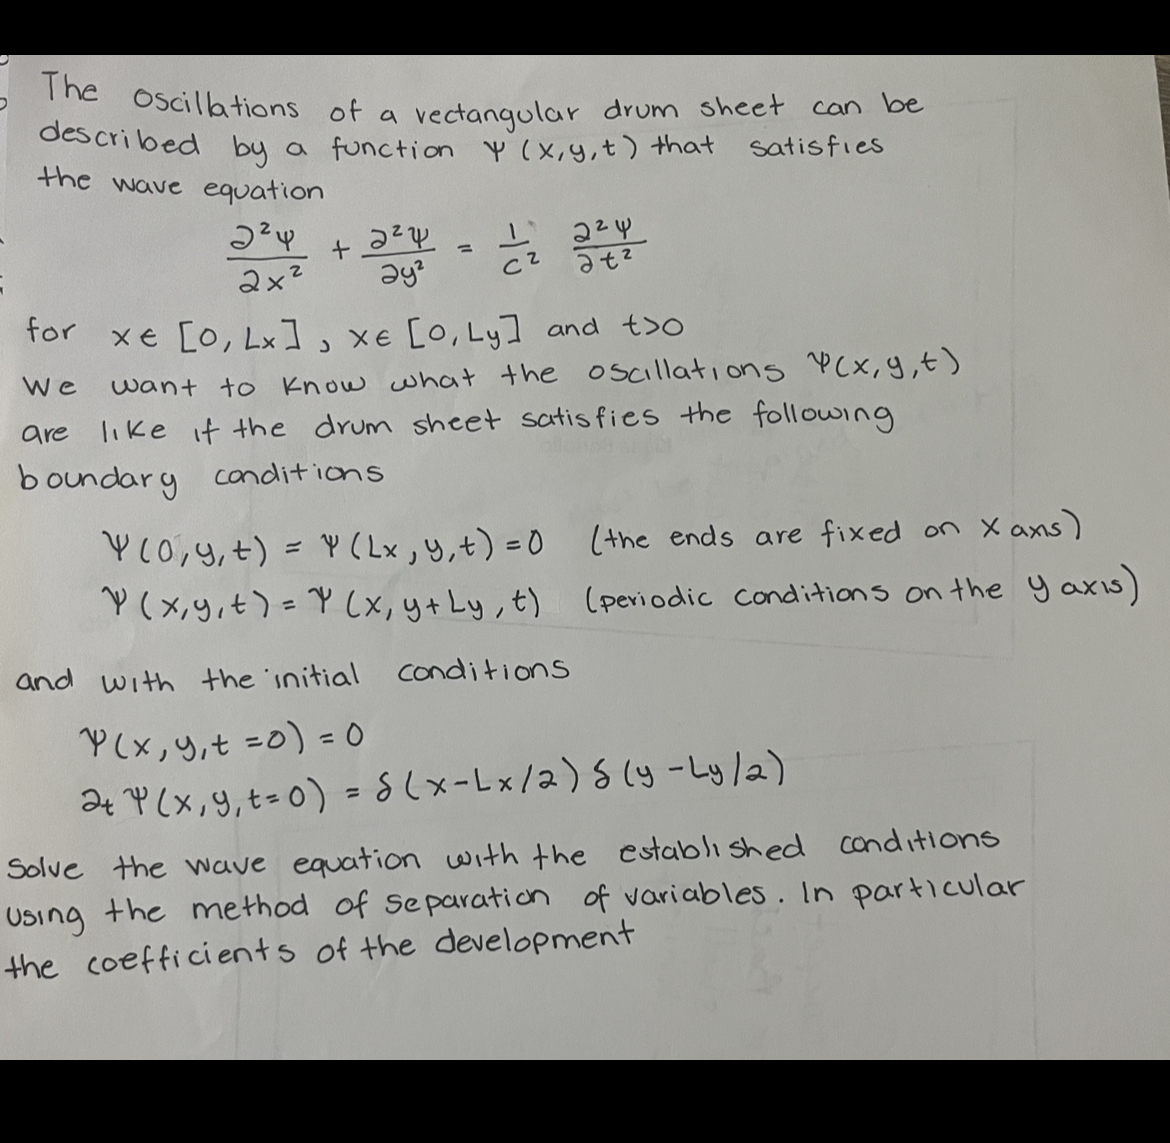 The oscillations of a rectangular drum sheet can be
described by a function Ψ(x,y,t) that satisfies
the wave equation
∂²Ψ/∂x² + ∂²Ψ/∂y² = 1/c² ∂²Ψ/∂t²
for x∈ [0, Lx], x∈ [0, Ly] and t>0
We want to know what the oscillations Ψ(x,y,t)
are like if the drum sheet satisfies the following
boundary conditions
Ψ(0,y,t) = Ψ(Lx,y,t)=0 (the ends are fixed on x axis)
Ψ(x,y,t)= Ψ(x, y+Ly, t) (periodic conditions on the y axis)
and with the initial conditions
Ψ(x,y,t=0)=0
∂t Ψ(x,y,t=0) = δ(x-Lx/2) δ(y-Ly/2)
Solve the wave equation with the established conditions
using the method of separation of variables. In particular
the coefficients of the development